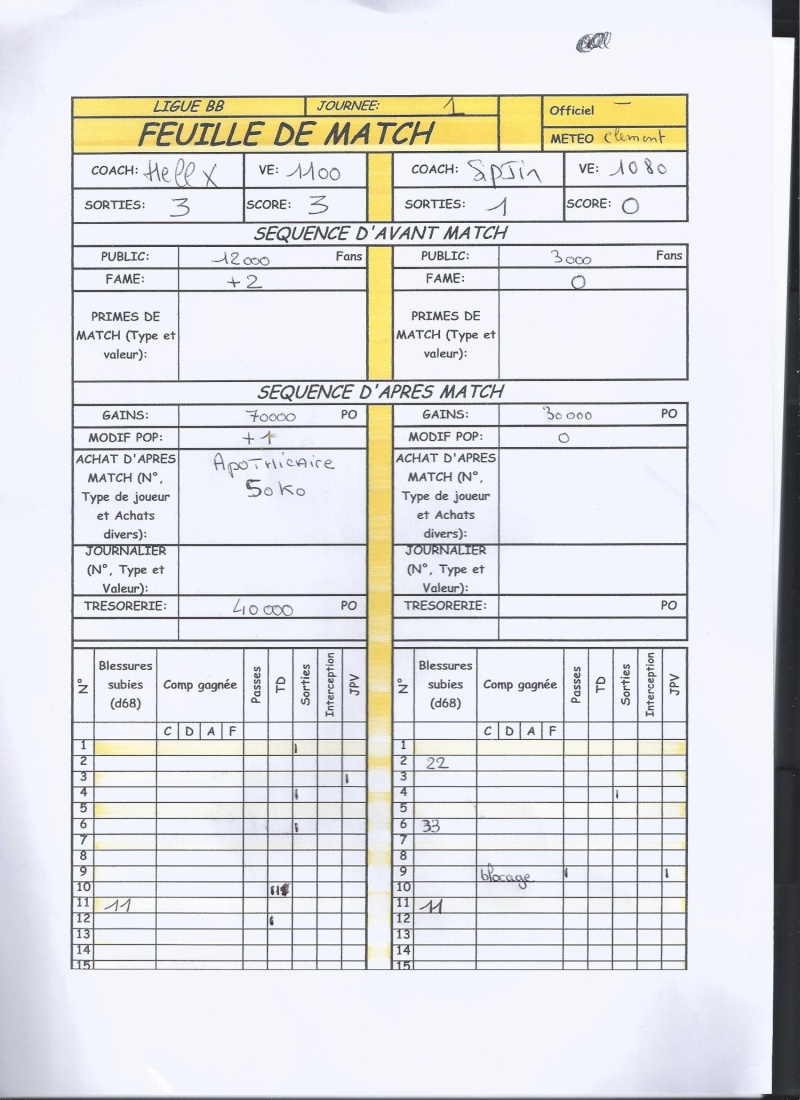 LIGUE BB JOURNEE: 1 Officiel —
FEUILLE DE MATCH METEO Clement
COACH: Hellx VE: 1100 COACH: SipJin VE: 1080
SORTIES: 3 SCORE: 3 SORTIES: 1 SCORE: 0
SEQUENCE D'AVANT MATCH
PUBLIC: 12000 Fans PUBLIC: 3000 Fans
FAME: +2 FAME: 0
PRIMES DE PRIMES DE
MATCH (Type et MATCH (Type et
valeur): valeur):
SEQUENCE D'APRES MATCH
GAINS: 70000 PO GAINS: 30000 PO
MODIF POP: +1 MODIF POP: 0
ACHAT D'APRES Apothicaire ACHAT D'APRES
MATCH (N°, 50Ko MATCH (N°,
Type de joueur Type de joueur
et Achats et Achats
divers): divers):
JOURNALIER JOURNALIER
(N°, Type et (N°, Type et
Valeur): Valeur):
TRESORERIE: 40000 PO TRESORERIE: PO
N° Blessures subies (d68) Comp gagnée Passes TD Sorties Interception JPV N° Blessures subies (d68) Comp gagnée Passes TD Sorties Interception JPV
C D A F C D A F
1 I 1
2 2 22
3 I 3
4 I 4 I
5 5
6 I 6 33
7 7
8 8
9 9 blocage I I
10 II 10
11 11 11 11
12 I 12
13 13
14 14
15 15